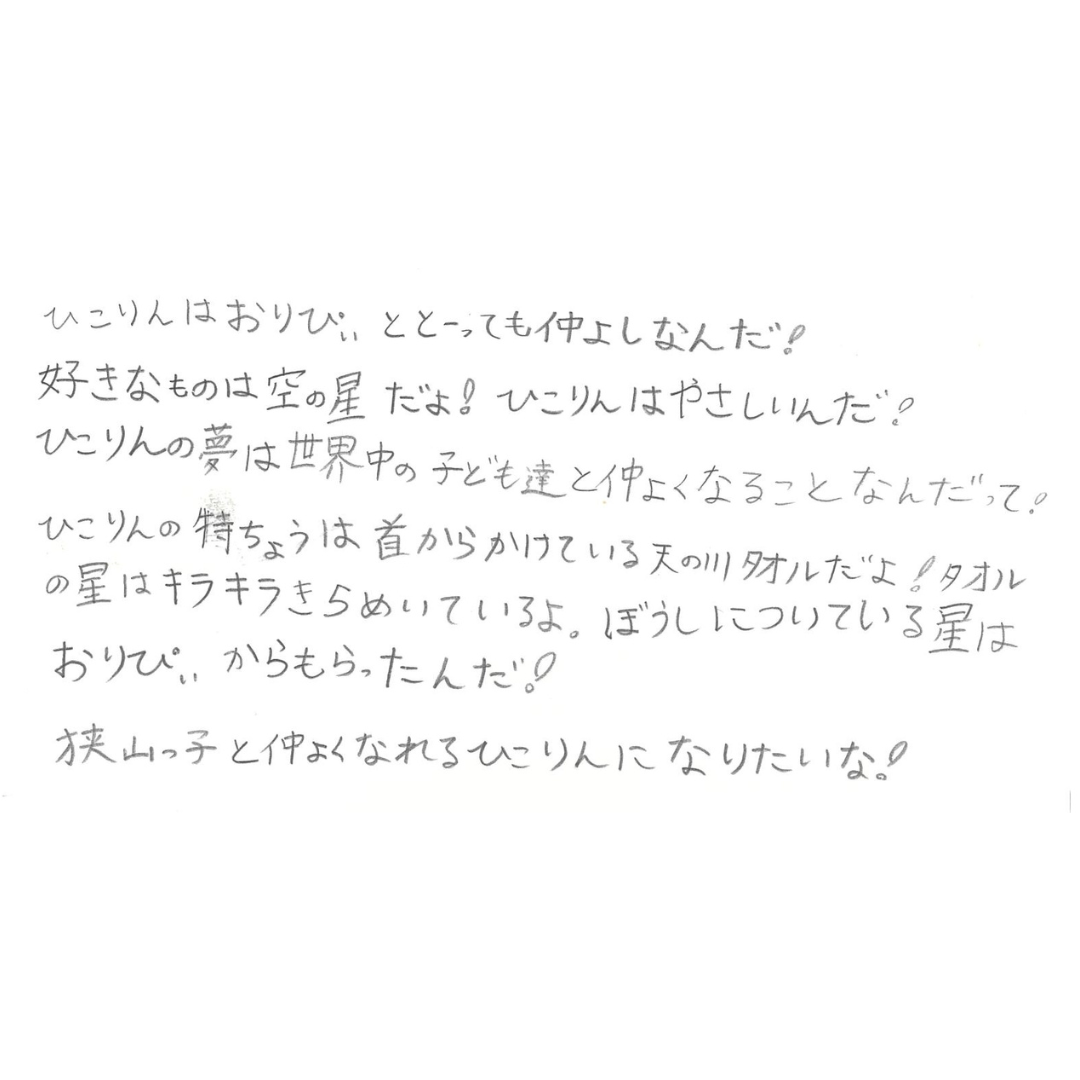 ひこりんはおりぴぃととーっても仲よしなんだ!
好きなものは空の星だよ!ひこりんはやさしいんだ!
ひこりんの夢は世界中の子ども達と仲よくなることなんだって!
ひこりんの特ちょうは首からかけている天の川タオルだよ!タオル
の星はキラキラきらめいているよ。ぼうしについている星は
おりぴぃからもらったんだ!
狭山っ子と仲よくなれるひこりんになりたいな!